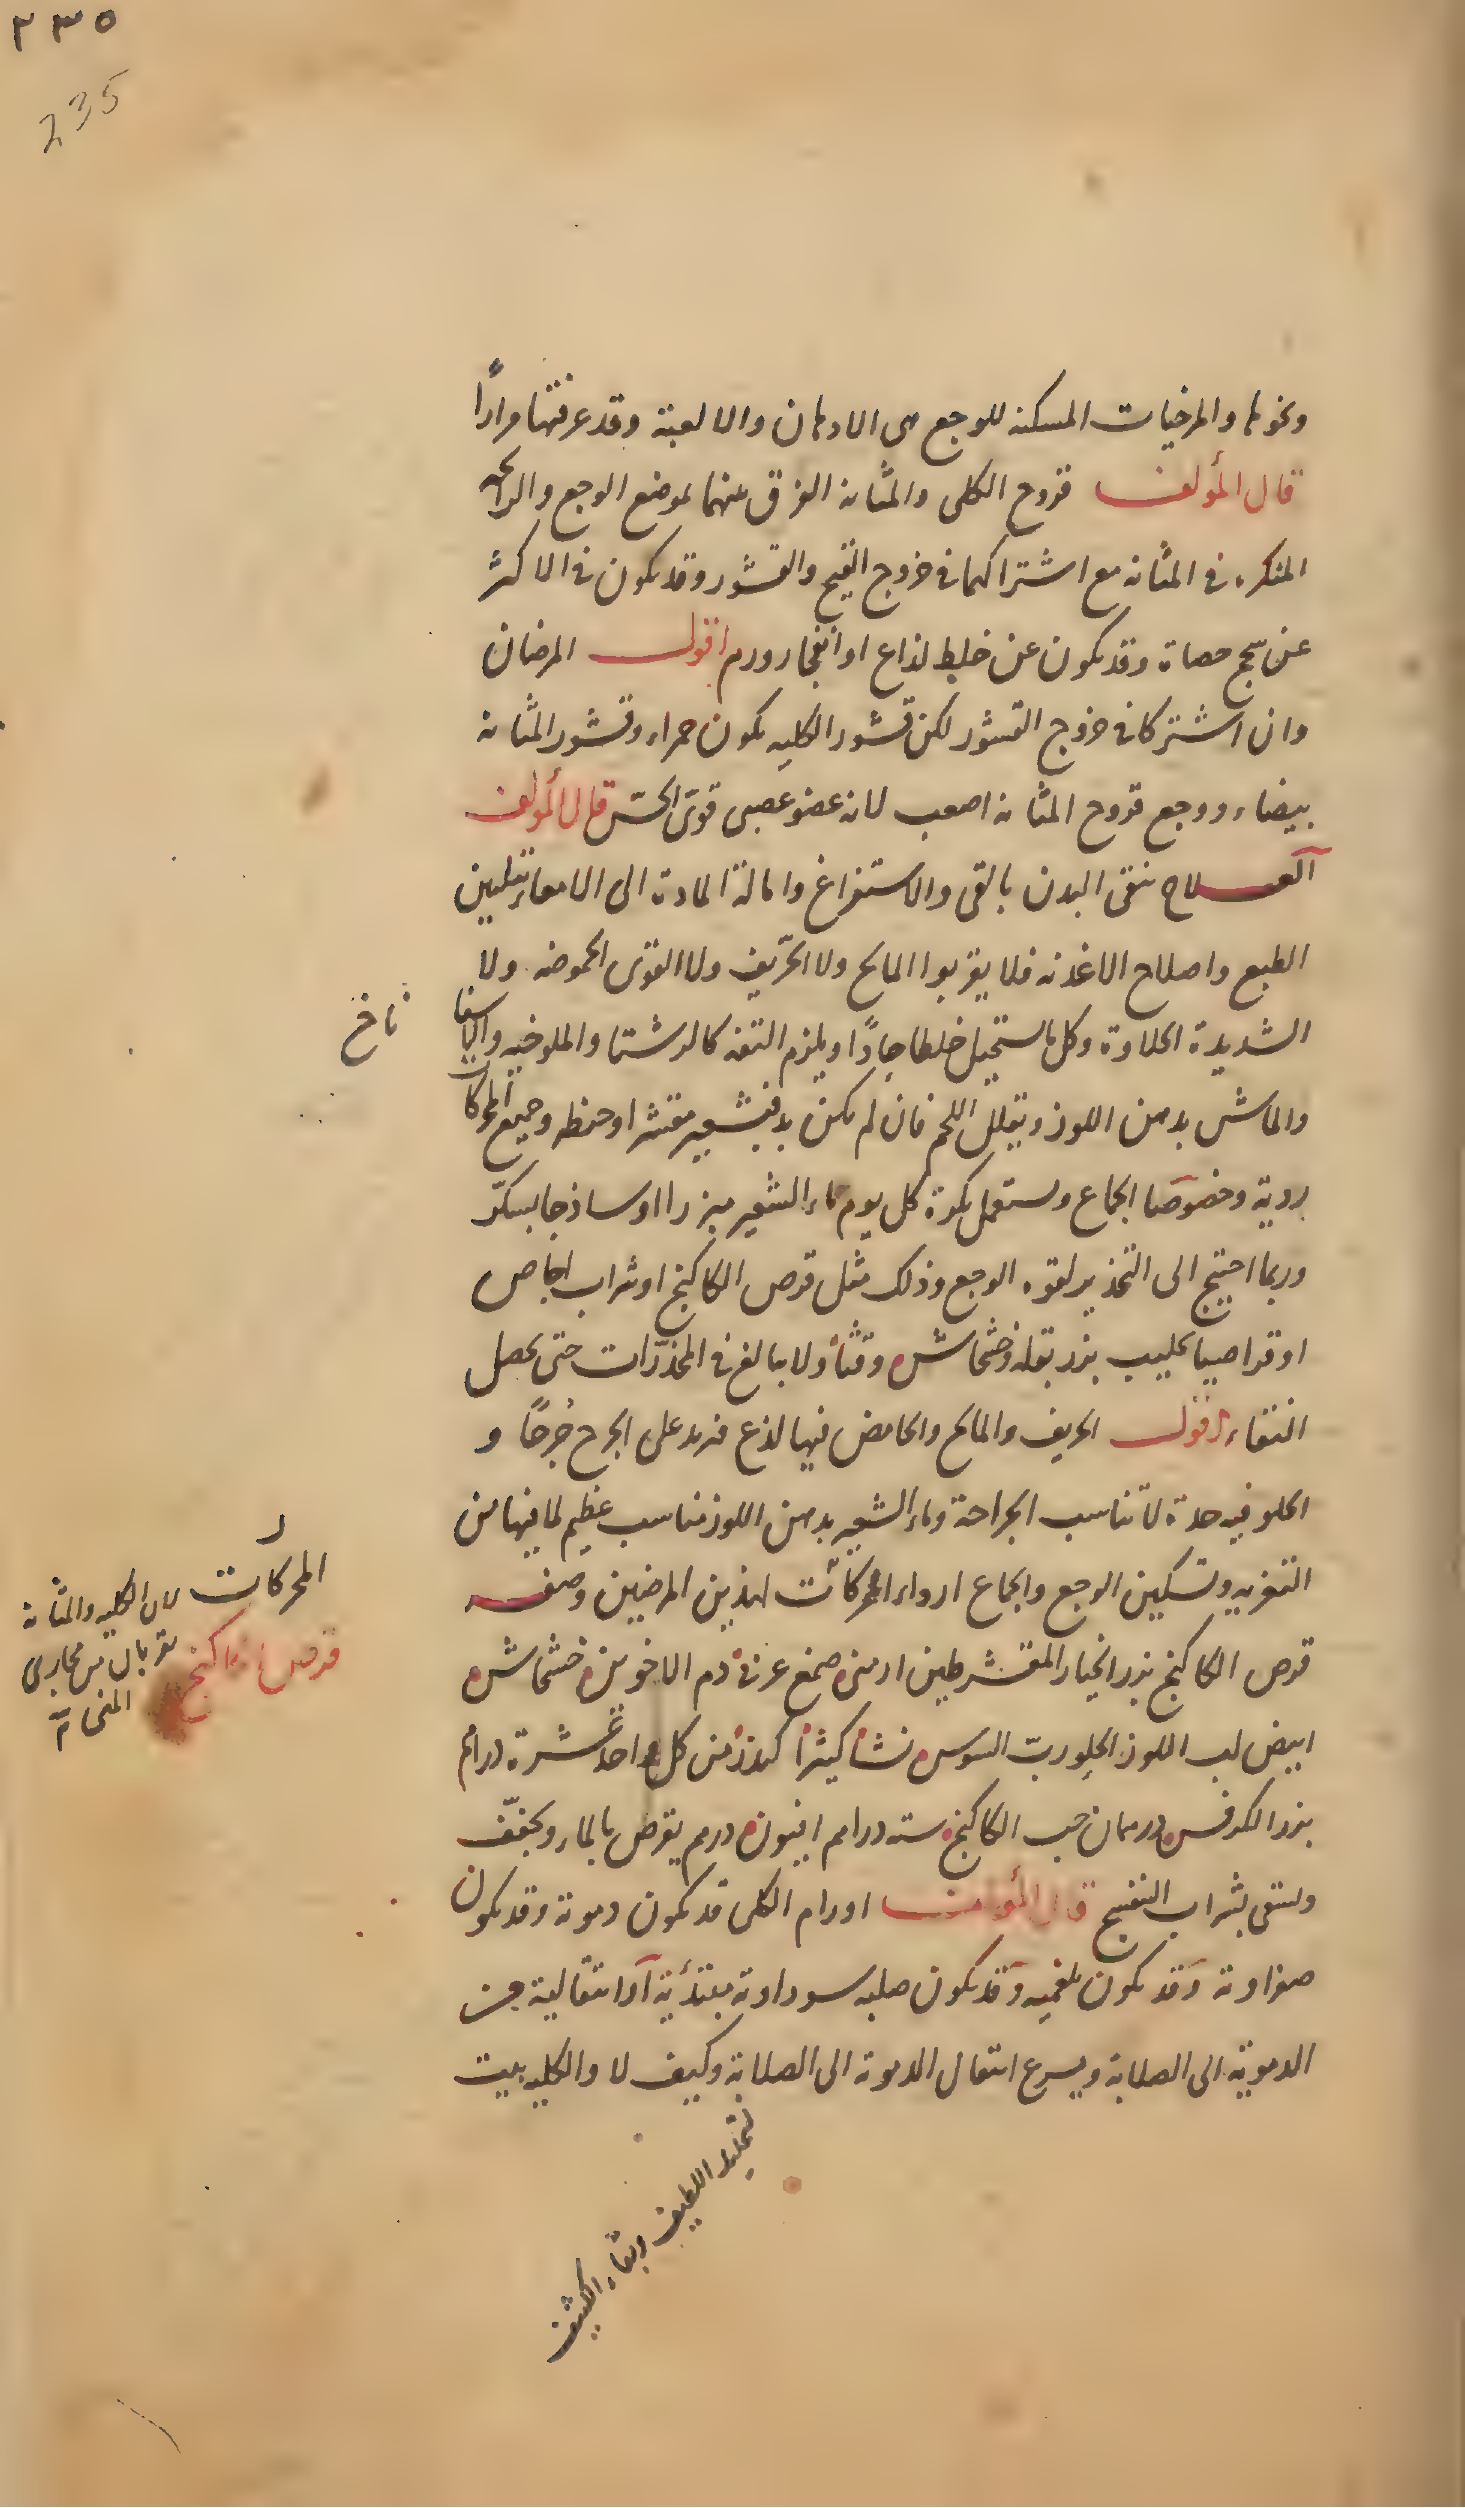 ٢٣٥
235
ونحوها والمرخيات المسكنة للوجع هى الادهان والالعبة وقد عرفتها مرارًا
قال المؤلف قروح الكلى والمثانة الفرق بينهما لموضع الوجع والرائحه
المنكره فى المثانه مع اشتراكهما فى خروج القيح والقشور وقد يكون فى الاكثر
عن سحج حصاة وقد يكون عن خلط لذاع او انفجار ورم اقول المرضان
وان اشتركا فى خروج القشور لكن قشور الكليه يكون حمراء وقشور المثانه
بيضاء ووجع قروح المثانة اصعب لانه عضو عصبى قوى الحسّ قال المؤلف
العلاج ينقى البدن بالقى والاستفراغ وامالة المادة الى الامعاء بتليين
الطبع واصلاح الاغذيه فلا يقربوا المالح ولا الحرّيف ولا القوى الحموضه ولا
الشديدة الحلاوة وكل ما يستحيل خلطا حادًا ويلزم التفه كالرشتا والملوخيه والاسفا
ناخ
والماش بدهن اللوز ويقلل اللحم فان لم يكن بد فبشعير مقشر او حنطه وجميع المحركات
ردية وخصوصا الجماع ويستعمل بكرة كل يوم ماء الشعير مبزرا او ساذجا بسكّر
وربما احتيج الى التخدير لقوه الوجع وذلك مثل قرص الكاكنج او شراب اجاص
او قراصيا بحليب بزر بقله وخشخاش وقثاء ولا يبالغ فى المخدّرات حتى يحصل
النقاء اقول الحريف والمالح والحامض فيها لذع فيزيد على الجرح جُرحًا و
الحلو فيه حدة لا تناسب الجراحة وماء الشعير بدهن اللوز مناسب عظيم لما فيها من
التغريه وتسكين الوجع والجماع اردا المحركات لهذين المرضين وصف
المحركات لان الكليه والمثانه
تقربان من مجارى
المنى
قرص كاكنج
قرص الكاكنج بزر الخيار المقشر طين ارمنى صمغ عربى دم الاخوين خشخاش
ابيض لب اللوز الحلو ربّ السوس نشا كثيرا كندر من كل واحد عشرة دراهم
بزر الكرفس درهمان حب الكاكنج ستة دراهم افيون درهم يقرص بالماء ويجفّف
ويسقى بشراب البنفسج قال المؤلف اورام الكلى قد يكون دموية وقد يكون
صفراوية وقد يكون بلغميه وقد يكون صلبه سوداوية مبتدئية او انتقالية من
الدموية الى الصلابة ويسرع انتقال الدموية الى الصلابة وكيف لا والكليه بيت
لتحليل اللطيف وبقاء الكثيف